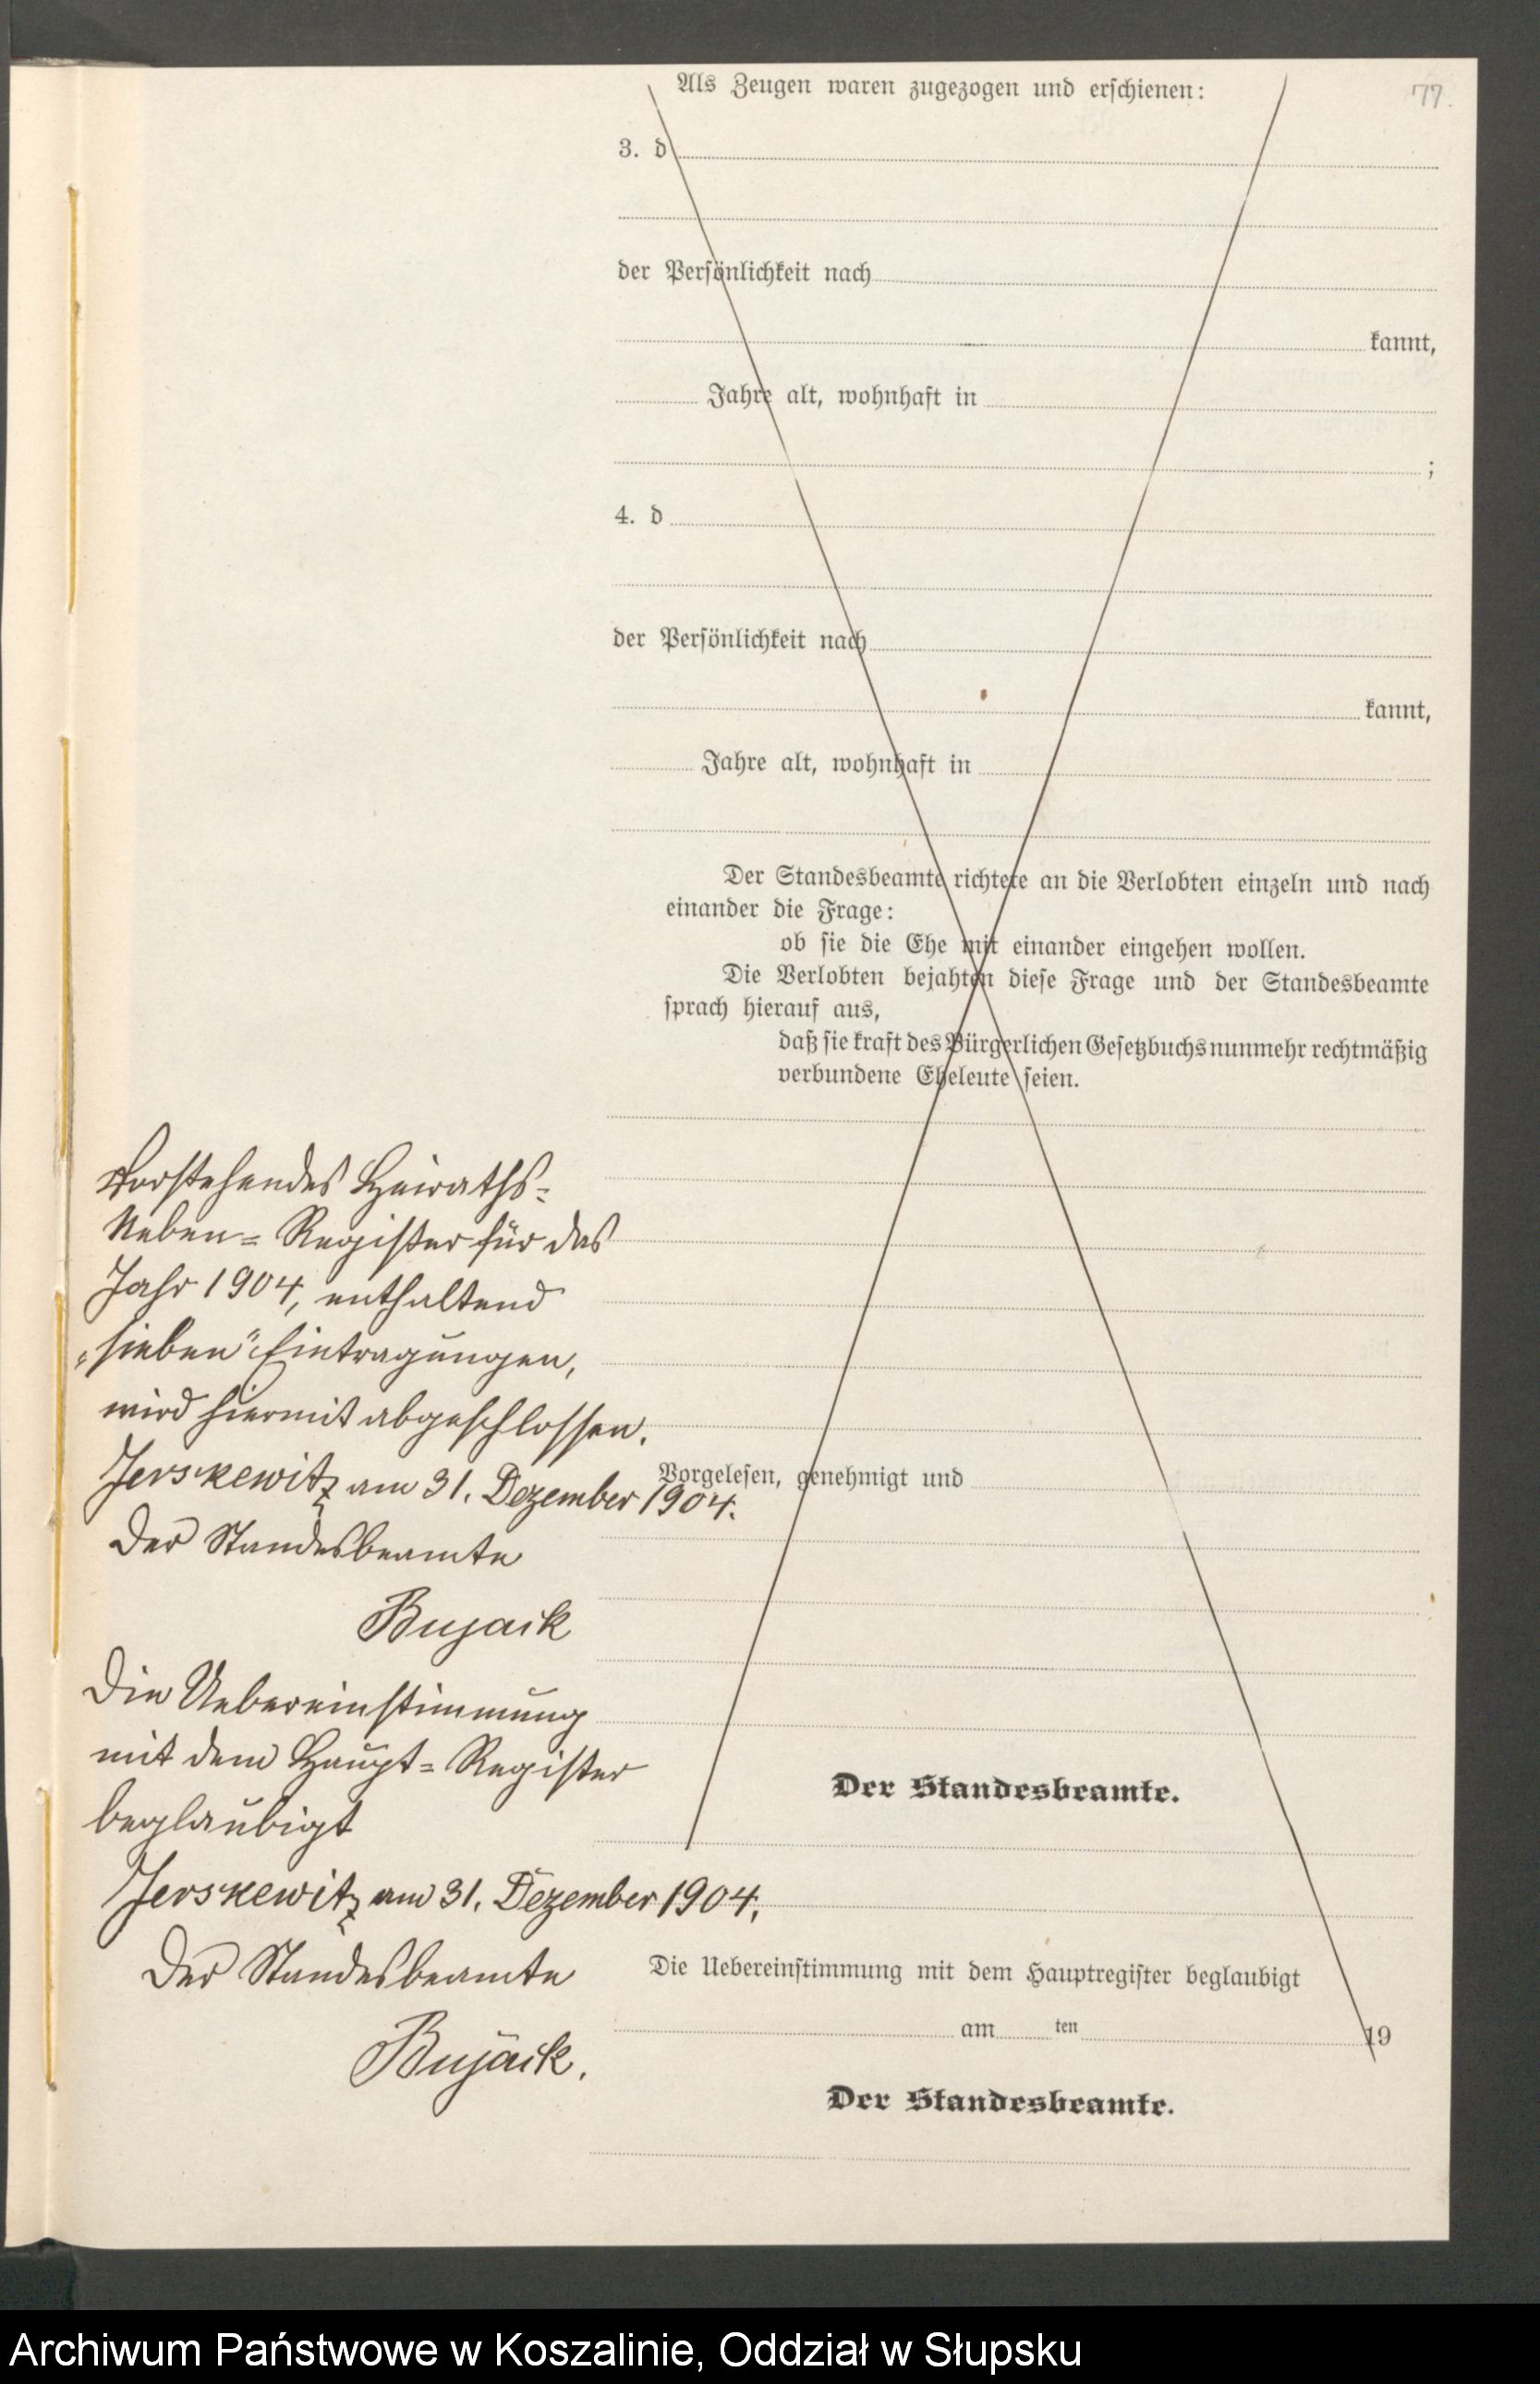 77.
Als Zeugen waren zugezogen und erschienen:
3. d
der Persönlichkeit nach
kannt,
Jahre alt, wohnhaft in
;
4. d
der Persönlichkeit nach
kannt,
Jahre alt, wohnhaft in
Der Standesbeamte richtete an die Verlobten einzeln und nach
einander die Frage:
ob sie die Ehe mit einander eingehen wollen.
Die Verlobten bejahten diese Frage und der Standesbeamte
sprach hierauf aus,
daß sie kraft des Bürgerlichen Gesetzbuchs nunmehr rechtmäßig
verbundene Eheleute seien.
Vorstehendes Heiraths-
Neben-Register für das
Jahr 1904, enthaltend
„sieben" Eintragungen,
wird hiermit abgeschlossen.
Jerskewitz am 31. Dezember 1904.
Der Standesbeamte
Bujack
Die Uebereinstimmung
mit dem Haupt-Register
beglaubigt
Jerskewitz am 31. Dezember 1904.
Der Standesbeamte
Bujack.
Vorgelesen, genehmigt und
Der Standesbeamte.
Die Uebereinstimmung mit dem Hauptregister beglaubigt
am ten 19
Der Standesbeamte.
Archiwum Państwowe w Koszalinie, Oddział w Słupsku